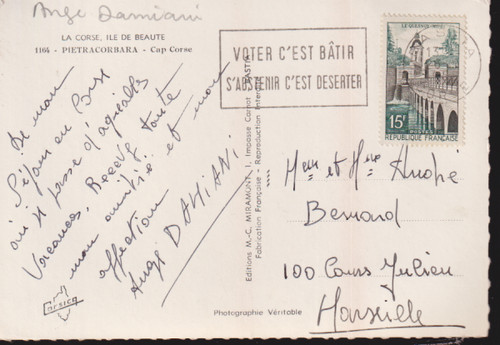 Ange Damiani
LA CORSE, ILE DE BEAUTE
1164 - PIETRACORBARA - Cap Corse
De mon
Séjour en Corse
où je passe d'agréables
Vacances, Reçevez toute
mon amitié et mon
affection
Ange DAMIANI
CORSICA
Editions M.-C. MIRAMONT, 1, Impasse Carnot - BASTIA
Fabrication Française - Reproduction Interdite
Photographie Véritable
VOTER C'EST BÂTIR
S'ABSTENIR C'EST DESERTER
LE QUESNOY-NORD
15F
POSTES
REPUBLIQUE FRANÇAISE
BASTIA
et Mme André
Bernard
100 Cours Julien
Marseille